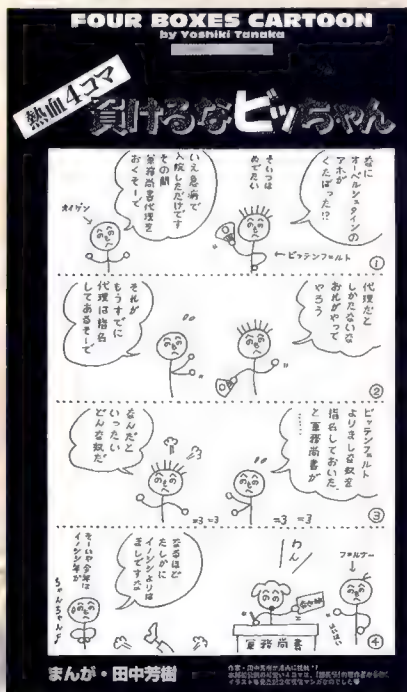 FOUR BOXES CARTOON
by Yoshiki Tanaka
熱血4コマ
負けるなビッちゃん
なに
オーベルシュタインの
アホが
くたばった!?
そいつは
めでたい
いえ急病で
入院しただけです
その間
軍務尚書代理を
おくそーで
オイゲン
←ビッテンフェルト
①
代理だと
しかたないな
おれがやって
やろう
それが
もうすでに
代理は指名
してあるそーで
②
ビッテンフェルト
よりましな奴を
指名しておいた、
と軍務尚書が
……
なんだと
いったい
どんな奴だ
=3 =3
=3 =3
③
フェルナー
わん
軍務尚書
なるほど
たしかに
イノシシよりは
ましですな
そーいや今年は
イノシシ年か
ちゃんちゃん
④
まんが・田中芳樹